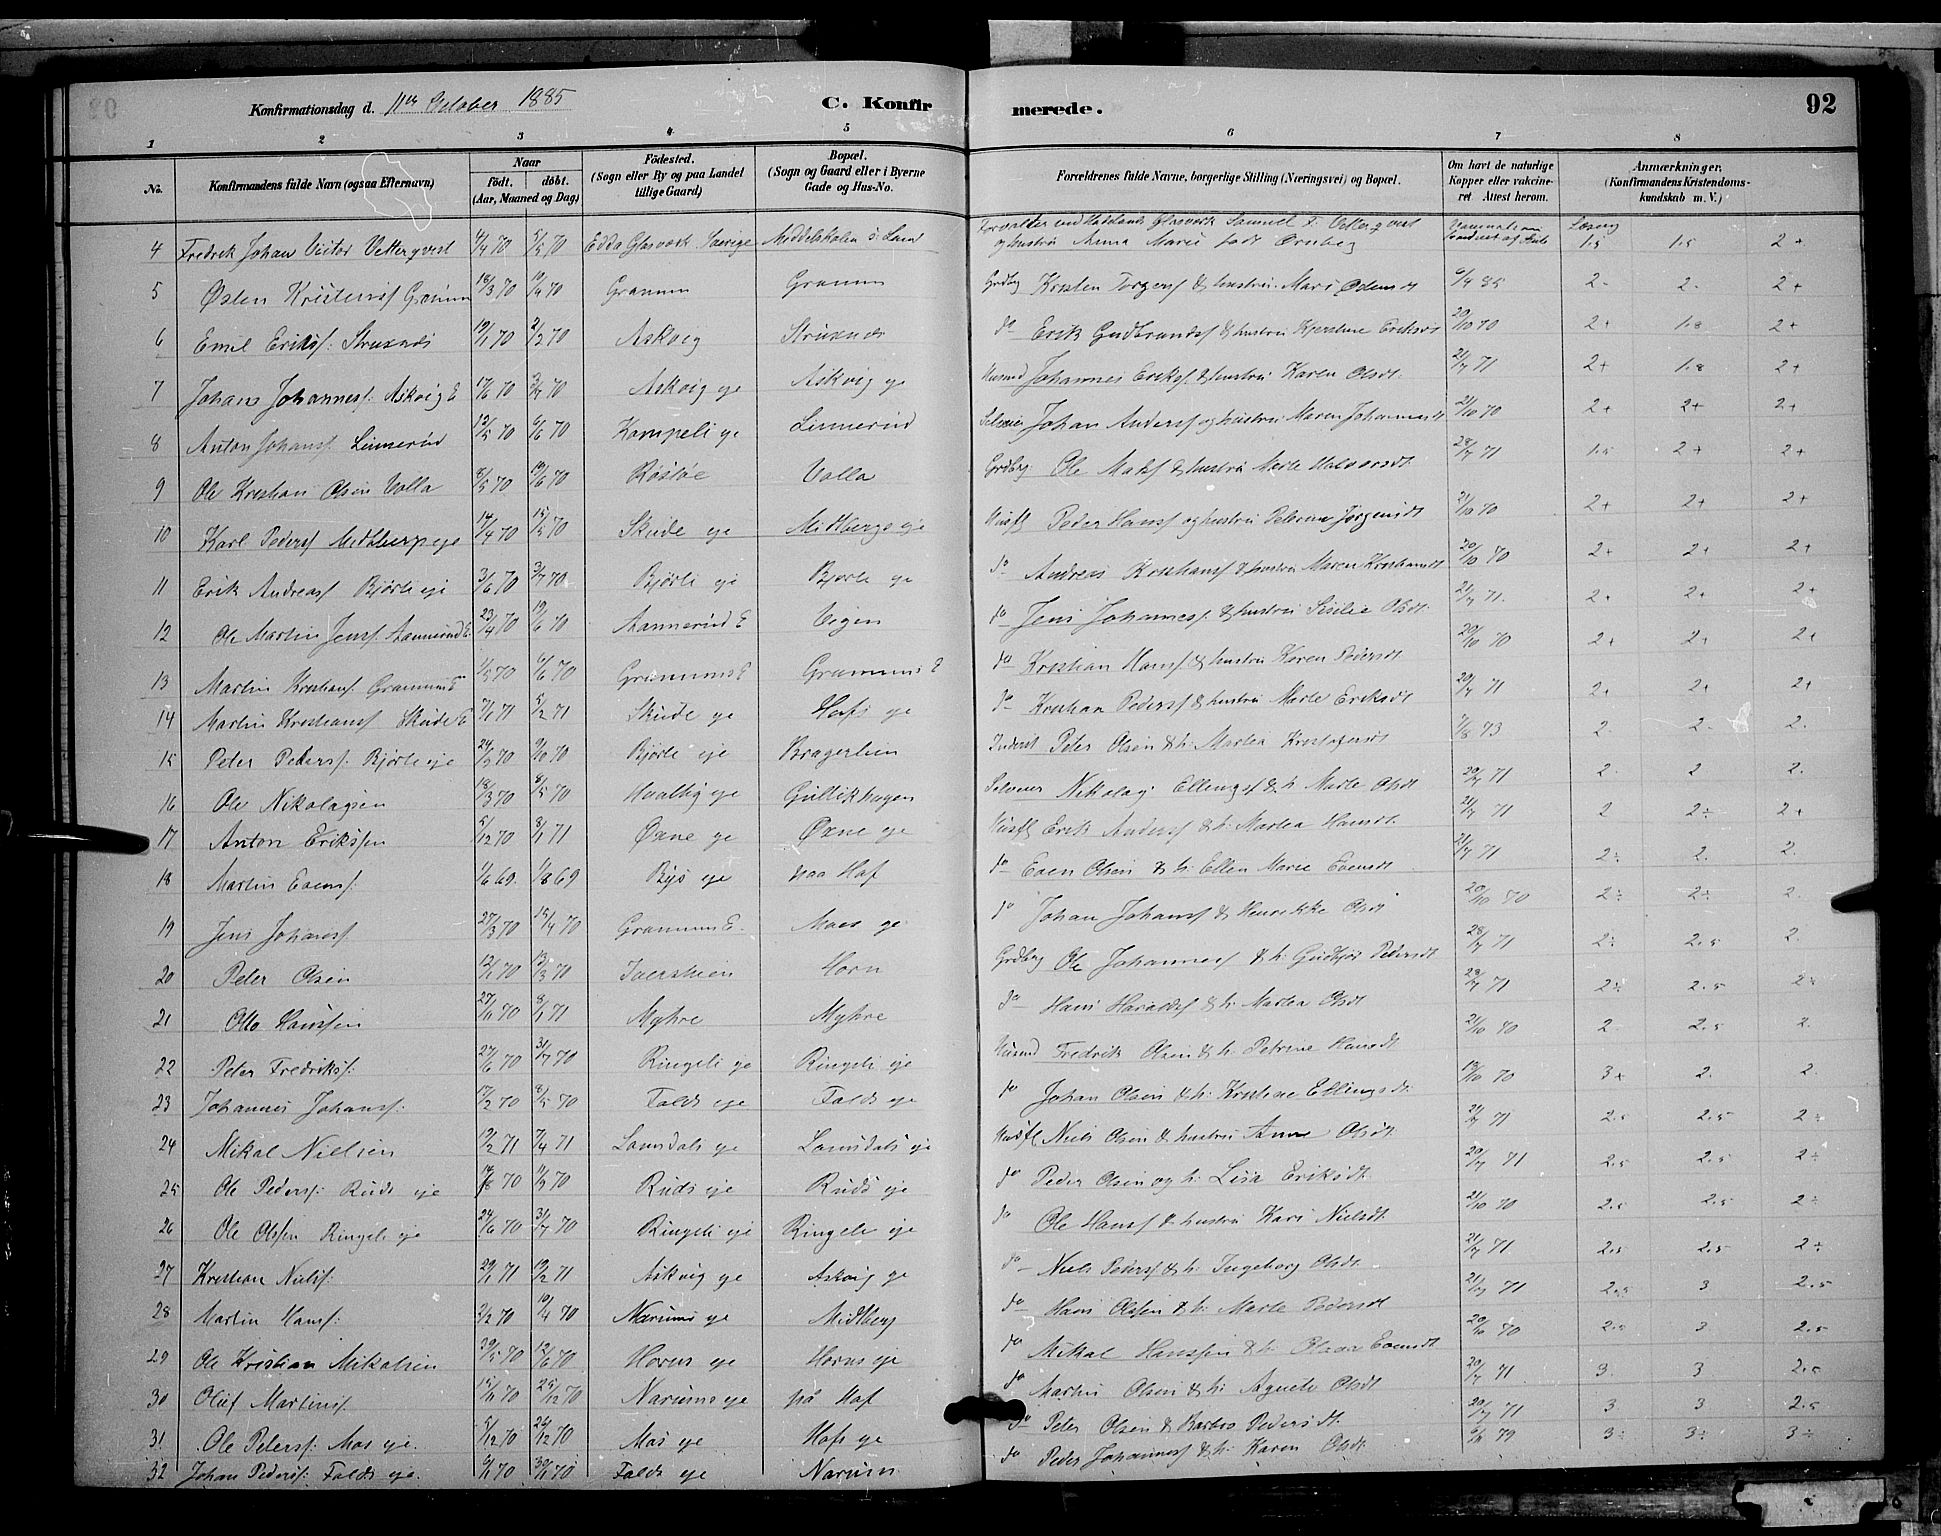 Konfirmationsdag d. 11te October 1885 C. Konfirmerede. 92
1 2 3 4 5 6 7 8
No. Konfirmandens fulde Navn (ogsaa Efternavn) Naar födt. döbt. (Aar, Maaned og Dag) Födested. (Sogn eller By og paa Landet tillige Gaard) Bopæl. (Sogn og Gaard eller i Byerne Gade og Hus-No.) Forældrenes fulde Navne, borgerlige Stilling (Næringsvei) og Bopæl. Om havt de naturlige Kopper eller vakcineret Attest herom. Anmærkninger. (Konfirmandens Kristendomskundskab m. V.)
4 Fredrik Johan Victor Vetterqvist 4/4 70 5/5 70 Edda Glasværk Sverige Middelskolen S. Land Forvalter ved Hadelands Glasværk Samuel F. Vetterqvist og hustru Anna Marie født Læsning 1.5 1.5 2+
5 Østen Kristens. Granum 18/3 70 10/4 70 Granum Granum Grdbrg Kristen Torgers. & hustru Mari Østensdt 2. 2. 2+
6 Emil Eriks. Struxnæs 19/1 70 2/2 70 Askvig Struxnæs do Erik Gudbrands. & hustru Kjerstine Eriksdt 20/10 70 2+ 1.8 2+
7 Johans Johannes. Askvig E 17/6 70 3/7 70 Askvig eje Askvig eje Husmd Johannes Eriks. & hustru Karen Olsdt. 21/7 71 2+ 1.8 2+
8 Anton Johans. Linnerud 12/5 70 6/6 70 Kompeli eje Linnerud Selveier Johan Anders. og hustru Maren Johannesdt 21/10 70 2+ 2+ 2+
9 Ole Kristian Olsen Volla 8/5 70 19/6 70 Røstøe Volla Grdbrg. Ole Mats. & hustru Marte Halvorsdt. 28/7 71 1.5 2+ 2+
10 Karl Peders. Midtberg eje 14/4 70 15/5 70 Skude eje Midtbergs eje Husfl Peder Hans. og hustru Peterine Jørgensdt 21/10 70 2+ 2+ 2+
11 Erik Andreas. Bjørli eje 3/6 70 3/7 70 Bjørli eje Bjørli eje do Andreas Kristians. & hustru Maren Kristiansdt 20/10 70 2+ 2+ 2+
12 Ole Martin Jens. Aannerud E. 23/4 70 19/6 70 Aannerud E Vigen do Jens Johannes. & hustru Sisilie Olsdt. 21/7 71. 2+ 2+ 2+
13 Martin Kristians. Granum E 1/5 70 6/6 70 Granums E Granums E do Kristian Hans. & hustru Karen Pedersdt 20/10 70 2+ 2+ 2+
14 Martin Kristians. Skude E 7/1 71 5/2 71 Skude eje Hofs eje do Kristian Peders. & hustru Marte Eriksdt 20/7 71 2+ 2+ 2+
15 Peter Peters. Bjørli eje 24/2 70 9/10 70 Bjørli eje Bragerlien Inderst Peter Olsen & h. Martea Kristofersdt 7/8 73 2. 2. 2.
16 Ole Nikolaysen 18/3 70 8/5 70 Hvalby eje Gullikhagen Selveier Nikolay Ellings. & h. Marte Olsdt 20/7 71 2. 2 2.
17 Anton Eriksen 5/12 70 8/1 71 Øxne eje Øxne eje Husfl Erik Anders. & h. Martea Hansdt. 21/7 71 2 2÷ 2+
18 Martin Evens. 1/6 69. 1/8 69 Byø eje paa Hof do Even Olsen & h. Ellen Marie Evensdt 21/7 71 2÷ 2. 2.
19 Jens Johans. 27/3 70 15/4 70 Granums E. Moes eje do Johan Johans. & Henrikke Olsdt 20/10 70 2÷ 2÷ 2.
20 Peter Olsen 12/1 70 13/3 70 Horn Grdbrg Ole Johannes. & h. Gudbjør Pedersdt 28/7 71 2÷ 2.5 2.
21 Otto Hansen 27/11 70 8/1 71 Myhre Myhre do Hans Haralds. & h. Martea Olsdt 28/7 71 2÷ 2.5 2÷
22 Peter Fredriks. 27/6 70 31/7 70 Ringeli eje Ringeli eje Husmd Fredrik Olsen & h. Petrine Hansdt 21/10 70 2. 2.5 2.
23 Johannes Johans. 17/2 70 8/5 70 Falds eje Falds eje do Johan Olsen & h. Kristine Ellingsdt. 19/10 70 3+ 2. 2.
24 Mikal Nielsen 19/2 71 7/4 71 Lomsdals eje Lomsdals eje Husfl Niels Olsen & hustru Anne Olsdt. 21/7 71 2.5 2.5 2÷
25 Ole Peders. Ruds eje 14/8 70 11/9 70 Ruds eje Ruds eje do Peder Olsen og h. Lisa Eriksdt. 20/7 71 2.5 2.5 2÷
26 Ole Olsen Ringeli eje 24/6 70 31/7 70 Ringeli eje Ringeli eje do Ole Hans. & hustru Kari Nielsdt. 21/10 70 2.5 2.5 2÷
27 Kristian Niels. 29/1 71 19/2 71 Askvig eje Askvig eje do Niels Peders. & h. Ingeborg Olsdt. 21/7 71 2.5 2.5 2÷
28 Martin Hans. 2/2 70 10/4 70 Narums eje Midtberg do Hans Olsen & h. Marte Pedersdt 21/7 71 2.5 3 2.5
29 Ole Kristian Mikalsen 30/5 70 12/6 70 Horns eje Horns eje do Mikal Hansen & h. Evensdt 20/10 70 2.5 3 2.5
30 Oluf Martins. 15/11 70 25/12 70 Narums eje på Hof do Martin Olsen & h. Agnete Olsdt 20/7 71 3. 3 2.5
31 Ole Peters. Mos eje. 5/12 70 24/12 70 Mos eje Hofs eje do Peter Olsen & Barbro Pedersdt. 20/7 71 3 3 2.5
32 Johan Peders. Falds eje. 6/11 70 30/11 70 Falds eje Narum do Peder Johannes. & h. Karen Olsdt. 79 3÷ 3÷ 3÷